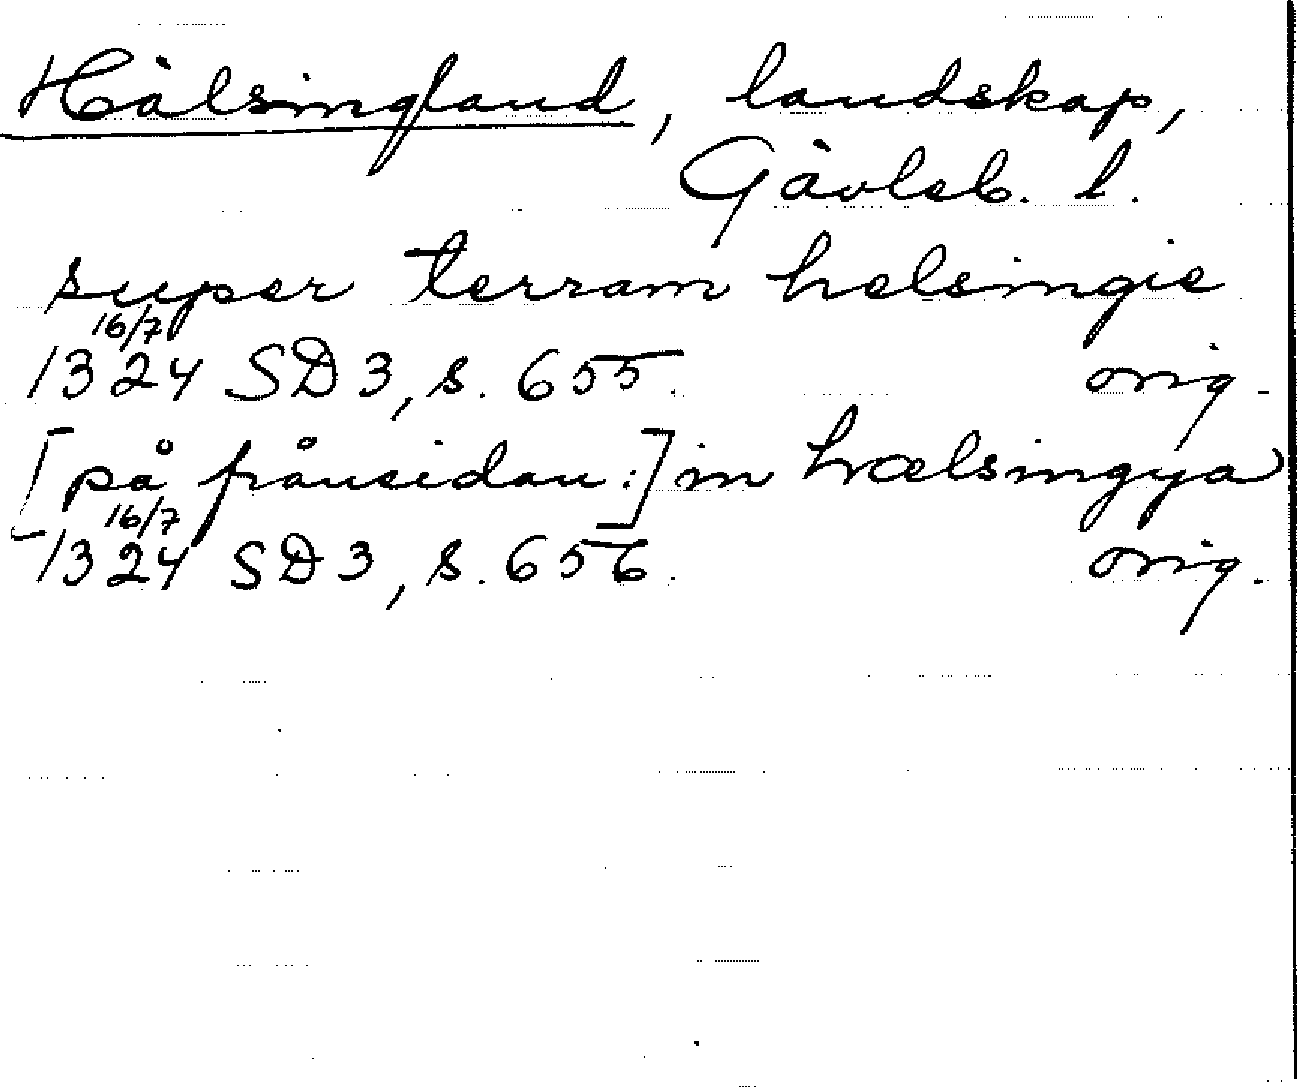 Hälsingland, landskap,
Gävleb. l.
super terram helsingie
16/7
1324 SD 3, s. 655. orig.
[på frånsidan:] in hælsingya
16/7
1324 SD 3, s. 656. orig.